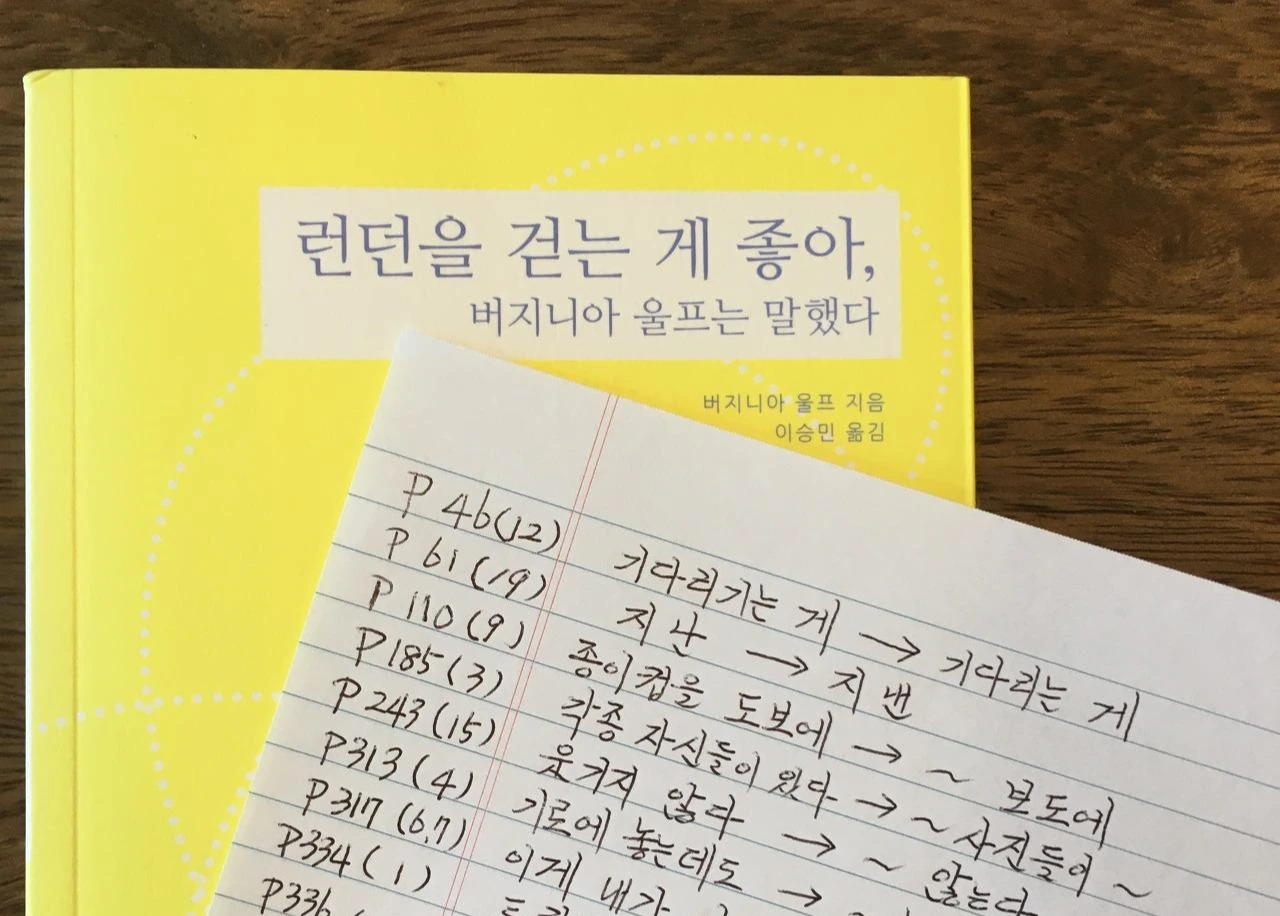 런던을 걷는 게 좋아,
버지니아 울프는 말했다
버지니아 울프 지음
이승민 옮김
P 46(12) 기다리기는 게 → 기다리는 게
P 61(19) 지난 → 지낸
P 110(9) 종이컵을 도보에 → ~ 보도에
P185(3) 각종 자신들이 있다 → ~사진들이~
P243(15) 웃기지 않다 → ~ 않는다
P313(4) 기로에 놓는데도 →
P317(6.7) 이게 내가
P334(1)
P336